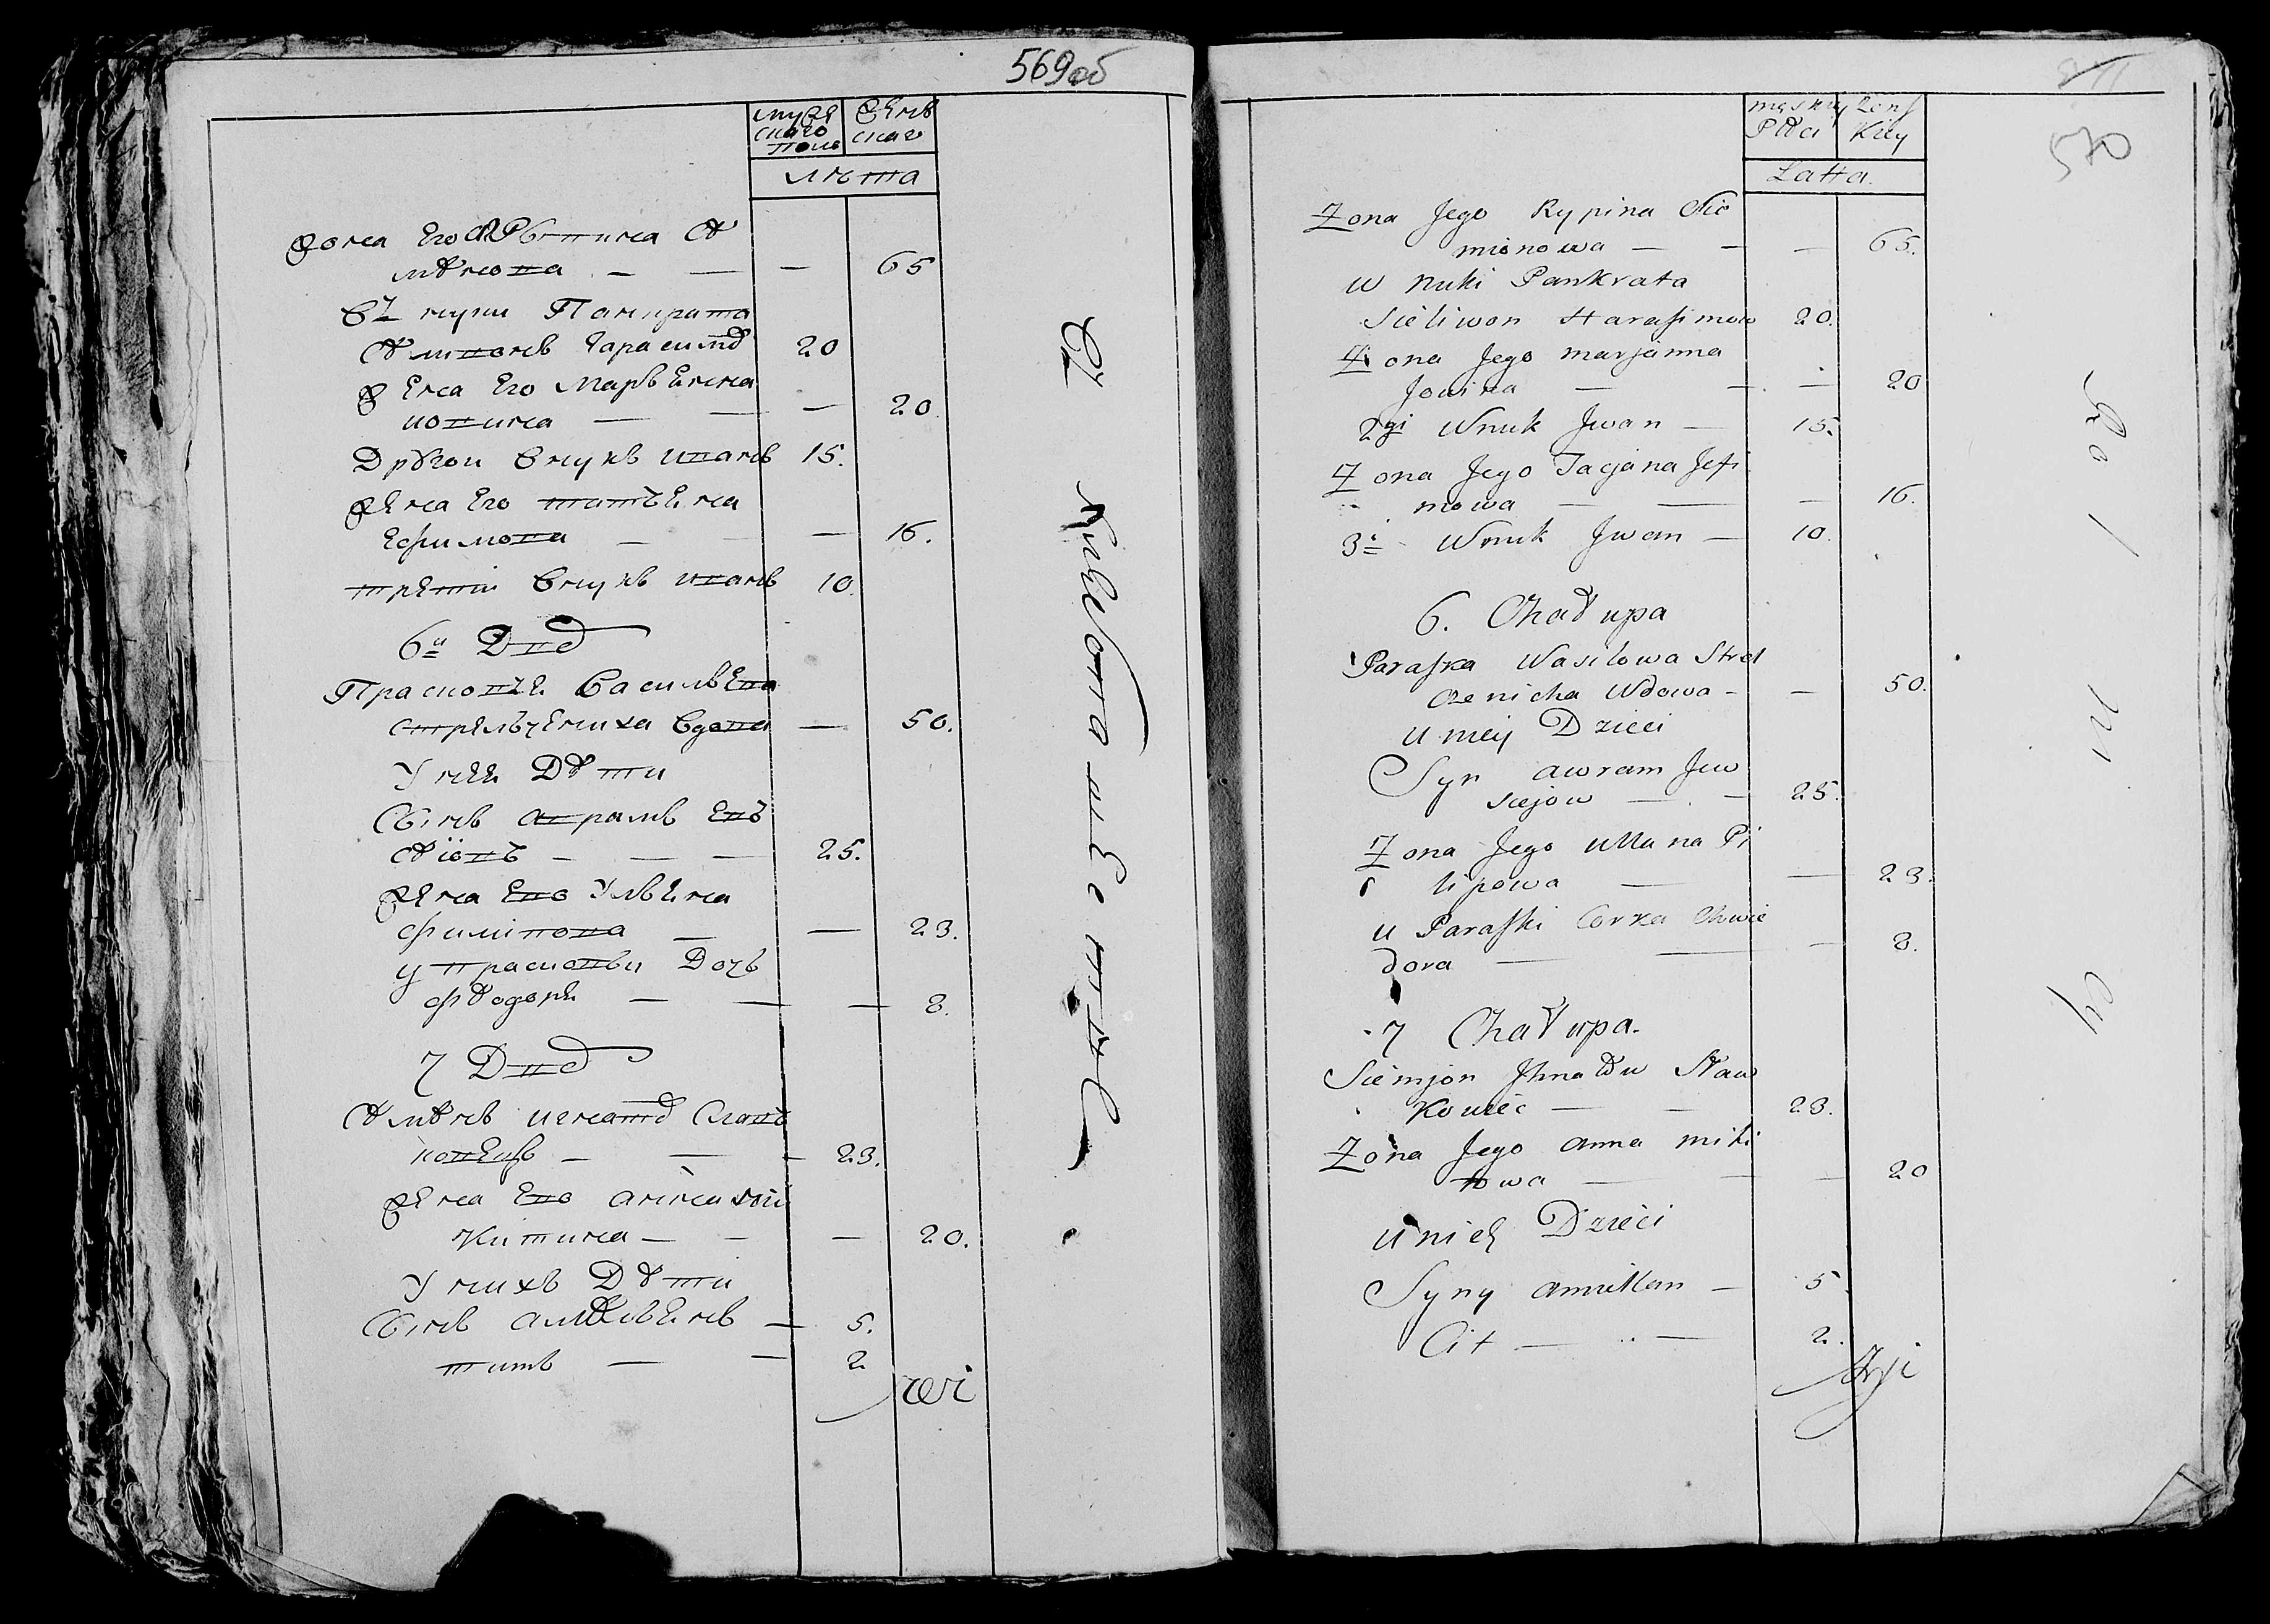 569об
мужс
скаго
пола
женс
скаго
лѣта
жона Его
мѣнова — — — 65
въ нуки Панкрата
Гарасимо 20
жена Его Марьенна
— — — 20.
Другои Внукъ иванъ 15.
жена Его татьена
Ефимова — — — 16.
третіи Внукъ иванъ 10.
6й Дво
Прасковье Василева
стрельченика Вдова — 50.
У нее Дѣти
Сынъ аврамъ Ев
сѣіовъ — — — 25.
жена Ево Ульена
филипова — — 23.
у прасковьи Дочь
фѣодоре — — — 8.
7 Дво
Сѣмѣнъ игнато Слав
ковецъ — — — 23.
жена Ево анна
Китина — — — 20.
У нихъ Дѣти
Сынъ амельенъ — 5.
титъ — — 2
męsky
Płci
żens
kiey
Latta.
570
Żona Jego Rypina Sie
mionowa — — — 65.
w nuki Pankrata
Sieliwon Harasimow 20.
Żona Jego marjanna
Jowina — — — 20
2gi Wnuk Jwan — 15.
Żona Jego Tacjana Jefi
mowa — — — 16.
3i Wnuk Jwan — 10.
6. Chałupa
Paraska Wasilowa Strel
czenicha Wdowa — — 50.
u niey Dzieci
Syn awram Jew
siejow — — 25.
Żona Jego Ullana Pi
lipowa — — 23.
u Paraski Corka Chwie
dora — — — 8.
7 Chałupa.
Siemjon Jhnatow Sław
kowiec — — 23.
Żona Jego anna miki
towa — — — 20
u nich Dzieci
Syny amillan — 5.
Cit — — 2.